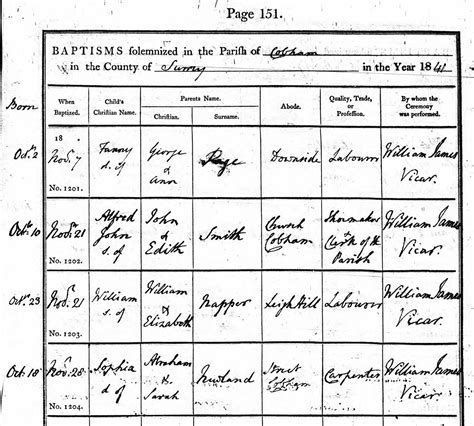 Page 151.
BAPTISMS solemnized in the Parish of Cobham
in the County of Surrey in the Year 1841
Born
When Baptized. Child's Christian Name. Parents Name. Abode. Quality, Trade, or Profession. By whom the Ceremony was performed.
Christian. Surname.
18
Oct 2 Novr. 7 Fanny d. of George & Ann Page Downside Labourer William James Vicar
No. 1201.
Octr. 10 Novr. 21 Alfred John s. of John & Edith Smith Church Cobham Shoemaker & Clerk of the Parish William James Vicar.
No. 1202.
Oct. 23 Novr. 21 William s. of William & Elizabeth Napper Leigh Hill Labourer William James Vicar.
No. 1203.
Oct. 18 Novr. 28 Sophia d of Abraham & Sarah Newland Street Cobham Carpenter William James Vicar.
No. 1204.